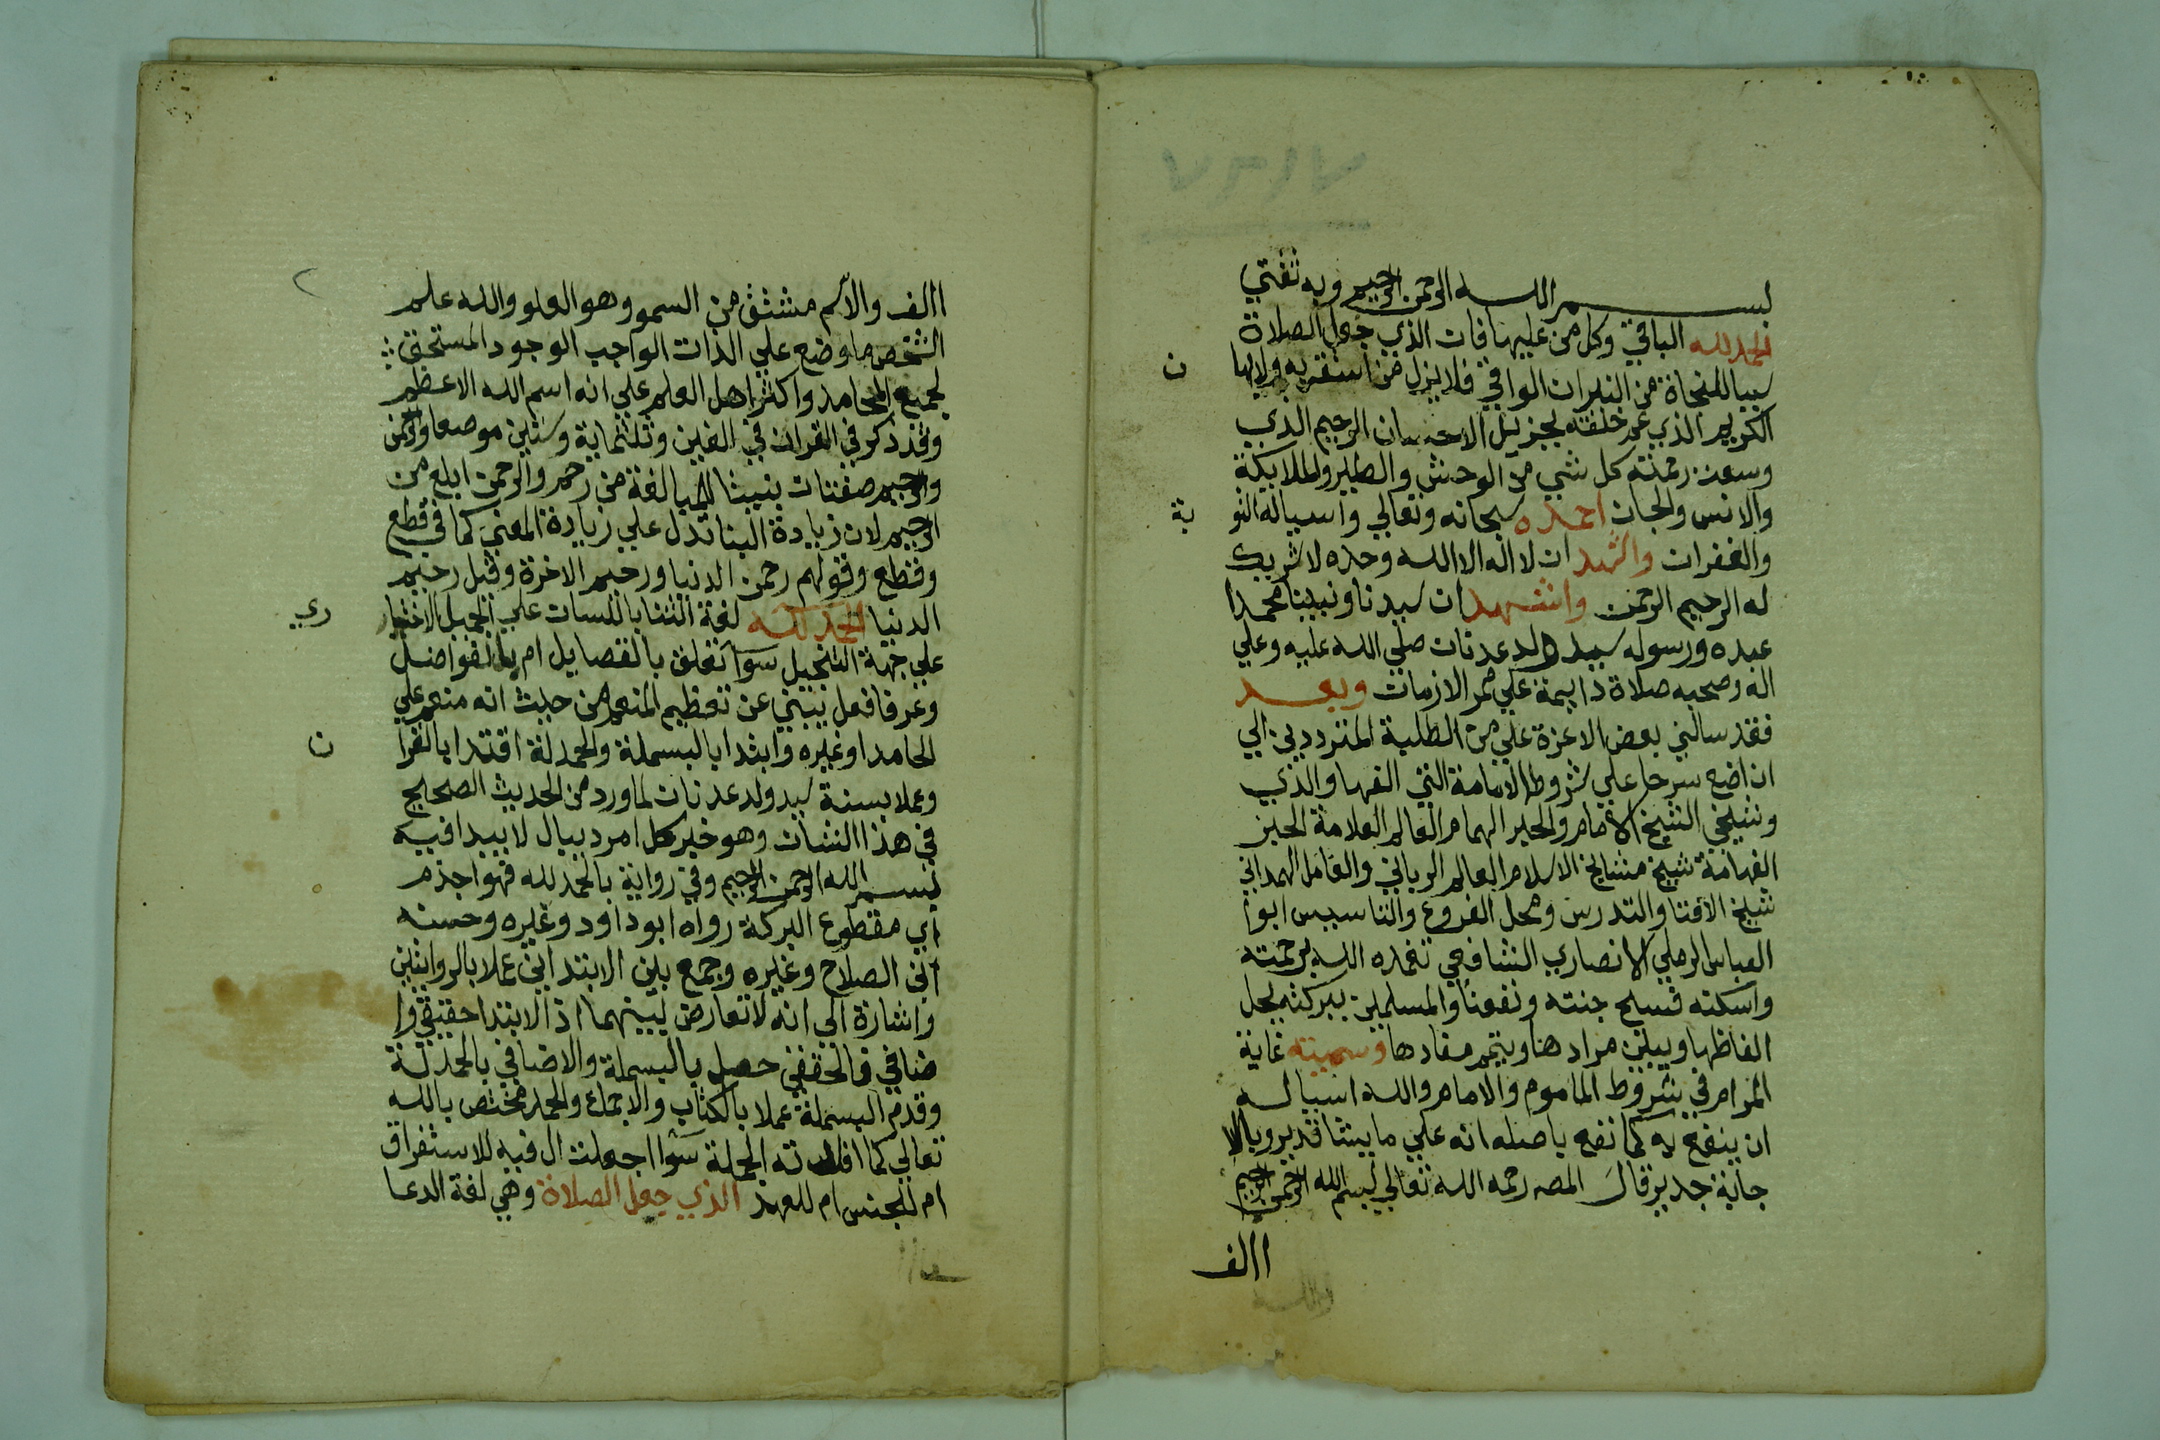 ٧٣١٧
بسم الله الرحمن الرحيم وبه ثقتي
الحمد لله الباقي وكل من عليها فان الذي جعل الصلاة
سببا للنجاة من النيران الواقي فلا يزل من استقر به ولا لها ن
الكريم الذي عم خلقه بجزيل الاحسان الرحيم الذي
وسعت رحمته كل شي من الوحش والطير والملايكة
والانس والجان احمده سبحانه وتعالي واساله التو بة
والغفران واشهد ان لا اله الا الله وحده لا شريك
له الرحيم الرحمن واشهد ان سيدنا ونبينا محمدا
عبده ورسوله سيد ولد عدنان صلي الله عليه وعلي
اله وصحبه صلاة دايمة علي ممر الازمان وبعد
فقد سالني بعض الاعزة علي من الطلبة المترددين الي
ان اضع شرحا علي شروط الامامة التي الفها والدي
وشيخي الشيخ الامام والحبر الهمام العالم العلامة الحبر
الفهامة شيخ مشايخ الاسلام العالم الرباني والعامل الهمداني
شيخ الافتا والتدرس ومحل الفروع والتاسيس ابوا
العباس الرملي الانصاري الشافعي تغمده الله برحمته
واسكنه فسيح جنته ونفعنا والمسلمين ببركته يحل
الفاظها ويبين مرادها ويتمم مفادها وسميته غاية
المرام في شروط الماموم والامام والله اسيا له
ان ينفع به كما نفع باصله انه علي ما يشا قدير وبالا
جابة جدير قال المص رحمه الله تعالي بسم الله الرحمن الرحيم
االف
االف والاسم مشتق من السمو وهو العلو والله علم
الشخص ما وضع علي الذات الواجب الوجود المستحق
لجميع المحامد واكثر اهل العلم علي انه اسم الله الاعظم
وقد ذكر في القران في الفين وثلثماية وستين موضعا والرحمن
والرحيم صفتان بنيتا للمبالغة من رحم والرحمن ابلغ من
الرحيم لان زيادة البنا تدل علي زيادة المعني كما في قطع
وقطع وقولهم رحمن الدنيا ورحيم الاخرة وقيل رحيم
الدنيا الحمد لله لغة الثنا باللسان علي الجميل الاختيا ري
علي جهة التبجيل سوا تعلق بالفضايل ام بالفواضل
وعرفا فعل ينبني عن تعظيم المنعم من حيث انه منعم علي
الحامد او غيره وابتدا بالبسملة والحمدلة اقتدا بالقرا ن
وعملا بسنة سيد ولد عدنان لما ورد من الحديث الصحيح
في هذا الشان وهو خبر كل امر ذي بال لا يبدا فيه
ببسم الله الرحمن الرحيم وفي رواية بالحمد لله فهو اجذم
اي مقطوع البركة رواه ابو داود وغيره وحسنه
ابن الصلاح وغيره وجمع بين الابتداين عملا بالروايتين
واشارة الي انه لا تعارض بينهما اذ الابتدا حقيقي وا
ضافي فالحقيقي حصل بالبسملة والاضافي بالحمدلة
وقدم البسملة عملا بالكتاب والاجماع والحمد مختص بالله
تعالي كما افادته الجملة سوا اجعلت ال فيه للاستغراق
ام للجنس ام للعهد الذي جعل الصلاة وهي لغة الدعا